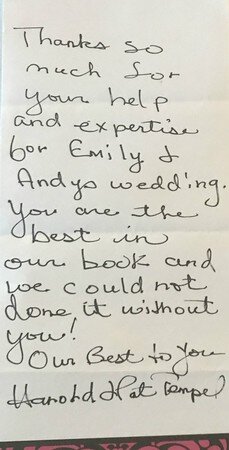 Thanks so
much for
your help
and expertise
for Emily &
Andys wedding.
You are the
best in
our book and
we could not
done it without
you!
Our Best to you
Harold & Pat Tempel